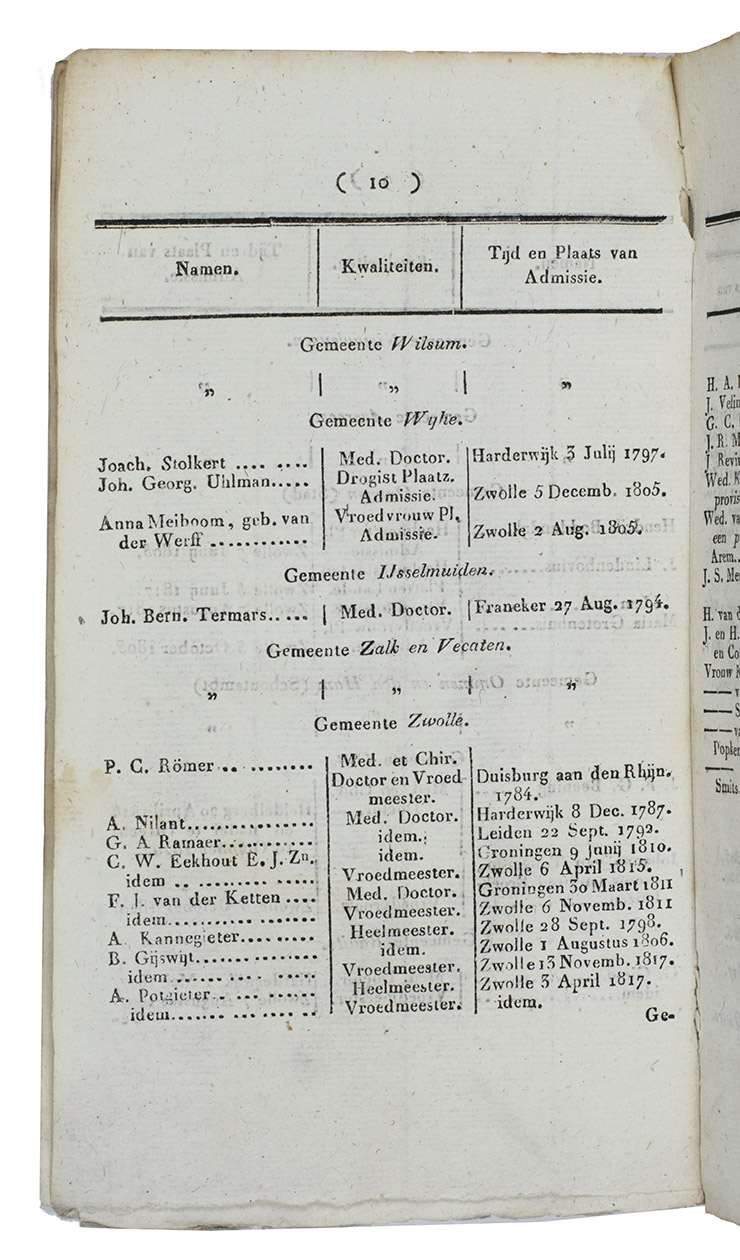 ( 10 )
Namen. Kwaliteiten. Tijd en Plaats van
Admissie.
Gemeente Wilsum.
„ „ „
Gemeente Wyhe.
Joach. Stolkert .... .... Med. Doctor. Harderwijk 3 Julij 1797.
Joh. Georg. Uhlman..... Drogist Plaatz.
Admissie. Zwolle 5 Decemb. 1805.
Anna Meiboom, geb. van Vroedvrouw Pl.
der Werff ............ Admissie. Zwolle 2 Aug. 1805.
Gemeente IJsselmuiden.
Joh. Bern. Termars..... Med. Doctor. Franeker 27 Aug. 1794.
Gemeente Zalk en Vecaten.
„ „ „
Gemeente Zwolle.
P. C. Römer .. ......... Med. et Chir.
Doctor en Vroed- Duisburg aan den Rhijn.
meester. 1784.
A. Nilant................. Med. Doctor. Harderwijk 8 Dec. 1787.
G. A Ramaer............. idem. Leiden 22 Sept. 1792.
C. W. Eekhout E. J. Zn. idem. Groningen 9 junij 1810.
idem .. .......... ..... Vroedmeester. Zwolle 6 April 1815.
F. J. van der Ketten .... Med. Doctor. Groningen 30 Maart 1811
idem........... ....... Vroedmeester. Zwolle 6 Novemb. 1811
A. Kannegieter.......... Heelmeester. Zwolle 28 Sept. 1798.
B. Gijswijt................ idem. Zwolle 1 Augustus 1806.
idem....... .... ..... Vroedmeester. Zwolle 13 Novemb. 1817.
A. Potgieter.. .... ...... Heelmeester. Zwolle 3 April 1817.
idem....... ... .... .. Vroedmeester. idem.
Ge-
H. A.
J.
G. C.
J. R. M
J
Wed. K
provis
Wed. va
een p
Arem..
J. S. Me
H. van d
J. en H.
en Co
Vrouw K
Popker
Smits.